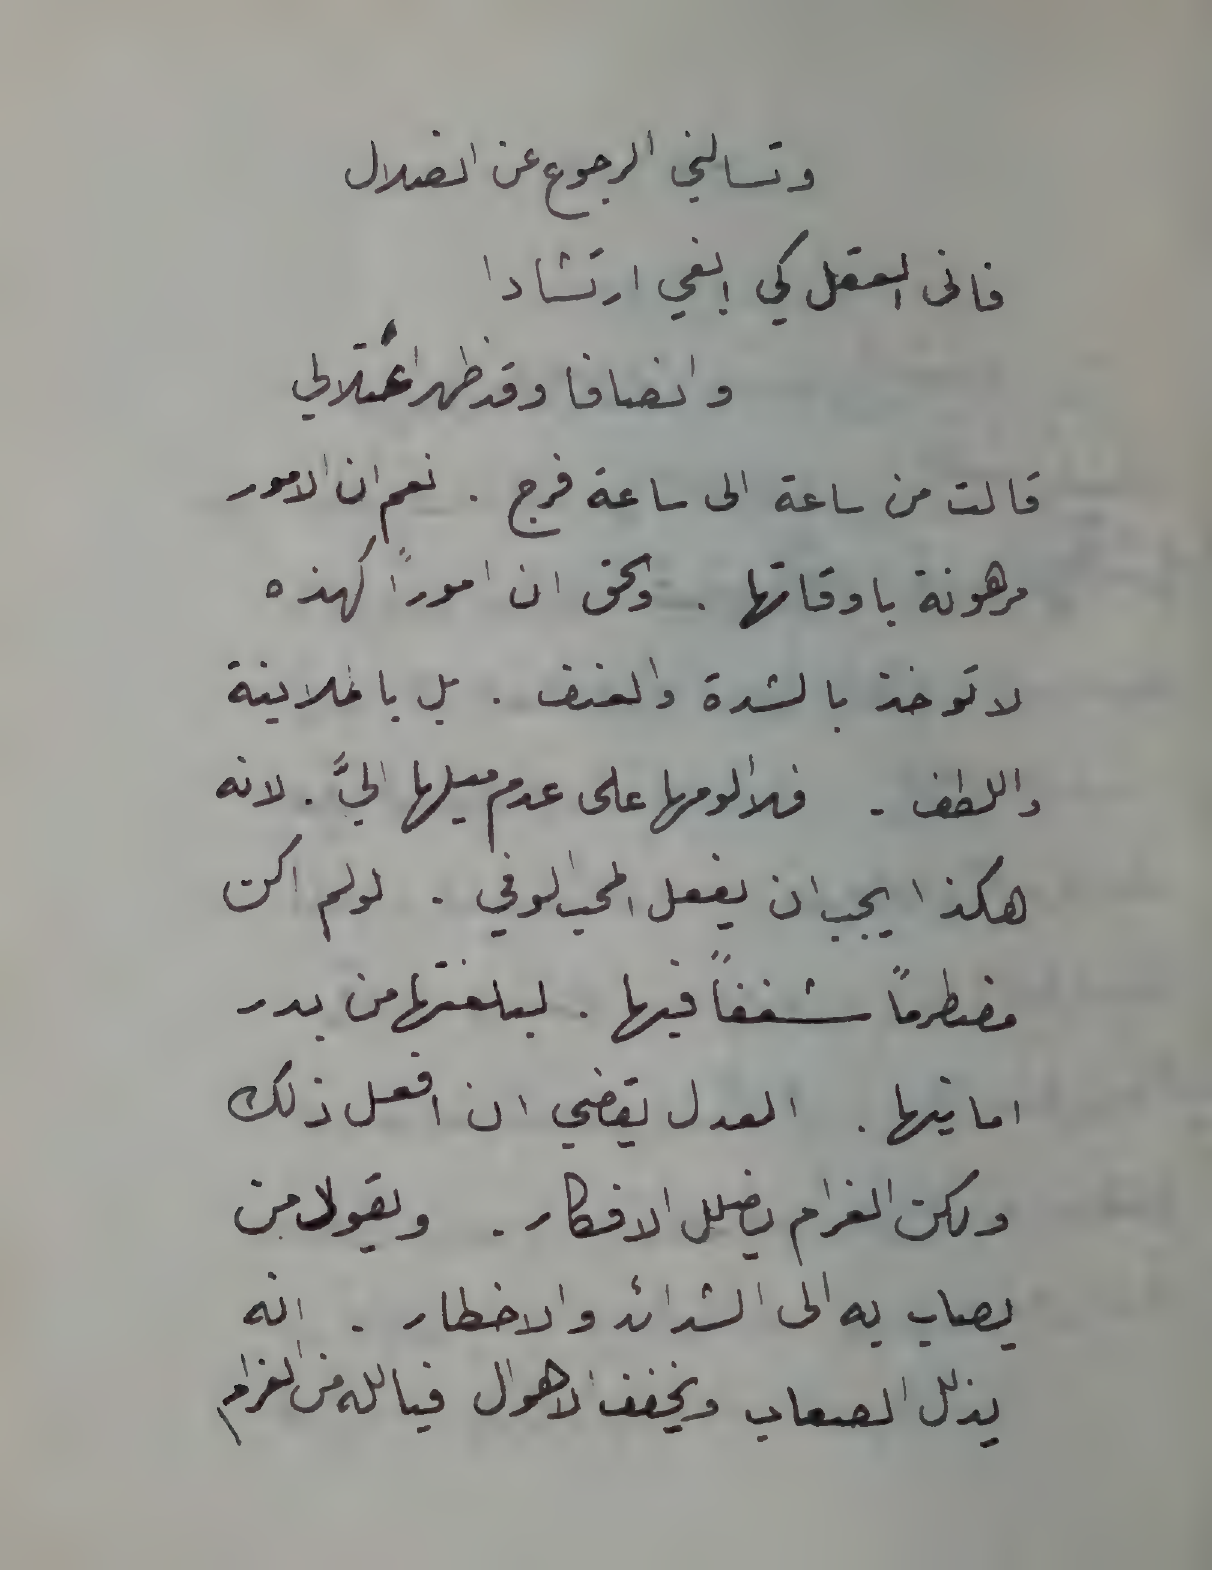 وتسالني الرجوع عن الضلال
فانى العقل كي ابغي ارتشادا
وانصافا وقد ظهر اعتلالي
قالت من ساعة الى ساعة فرج . نعم ان الامور
مرهونة باوقاتها . والحق ان اموراً كهذه
لا توخذ بالشدة والعنف . بل بالملاينة
واللطف . فلا الومها على عدم ميلها اليَّ . لانه
هكذا يجب ان يفعل المحب الوفي . لو لم اكن
مضطرماً شغفاً فيها . لبلغتها من بدر
امانيها . العدل يقضي ان افعل ذلك
ولكن الغرام يضلل الافكار . ويقول من
يصاب به الى الشدائد والاخطار . انه
يذلل الصعاب ويخفف الاهوال فيالله من الغرام